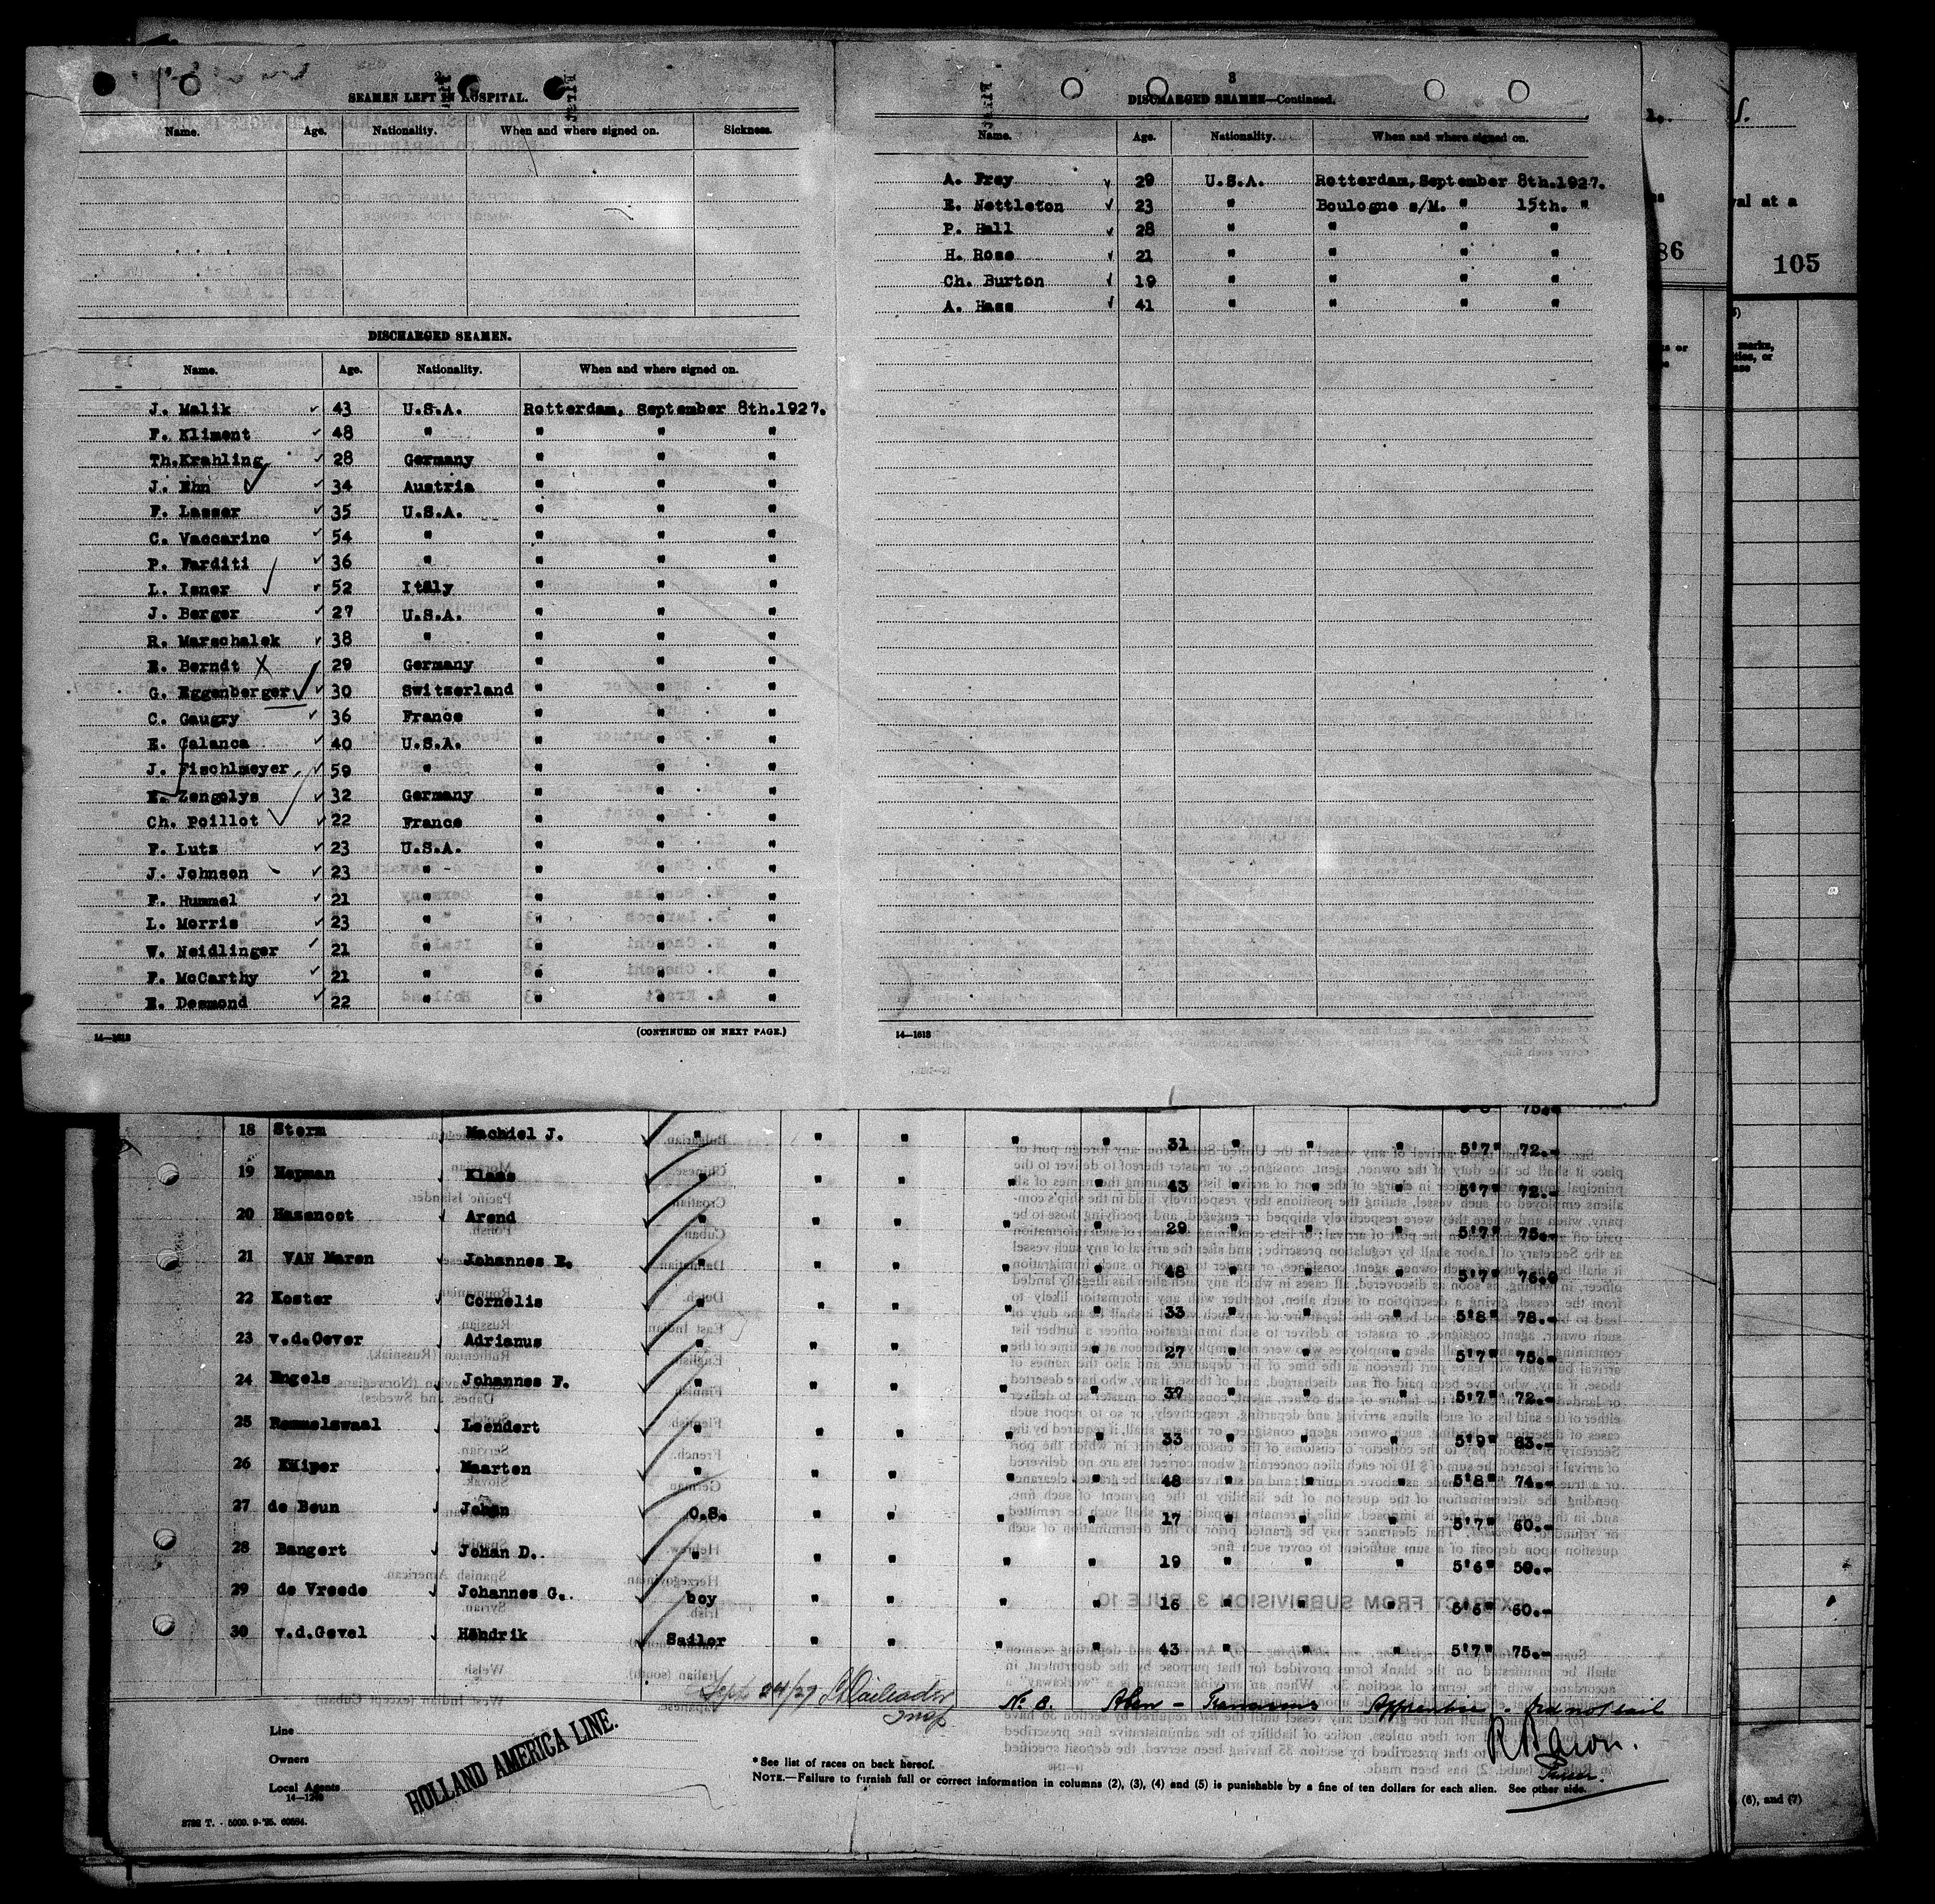 2
SEAMEN LEFT IN HOSPITAL.
Name. Age. Nationality. When and where signed on. Sickness.
DISCHARGED SEAMEN.
Name. Age. Nationality. When and where signed on.
J. Malik ✓ 43 U.S.A. Rotterdam, September 8th.1927.
F. Kliment ✓ 48 " " " "
Th.Krahling ✓ 28 Germany " " "
J. Ehn ✓ ✓ 34 Austria " " "
F. Lasser ✓ 35 U.S.A. " " "
C. Vaccarino ✓ 54 " " " "
P. Farditi ✓ 36 " " " "
L. Isner ✓ ✓ 52 Italy " " "
J. Berger ✓ 27 U.S.A. " " "
R. Marschalek ✓ 38 " " " "
E. Berndt X 29 Germany " " "
G. Eggenberger ✓ ✓ 30 Switzerland " " "
C. Gaugry ✓ 36 France " " "
E. Calanca ✓ 40 U.S.A. " " "
J. Fischlmeyer ✓ 59 " " " "
E. Zengolys ✓ 32 Germany " " "
Ch. Poillot ✓ ✓ 22 France " " "
F. Lutz ✓ 23 U.S.A. " " "
J. Johnson ✓ 23 " " " "
F. Hummel ✓ 21 " " " "
L. Morris ✓ 23 " " " "
W. Neidlinger ✓ 21 " " " "
F. McCarthy ✓ 21 " " " "
E. Desmond ✓ 22 " " " "
14—1618 (CONTINUED ON NEXT PAGE.)
3
DISCHARGED SEAMEN—Continued.
Name. Age. Nationality. When and where signed on.
A. Frey ✓ 29 U.S.A. Rotterdam,September 8th.1927.
E. Nettleton ✓ 23 " Boulogne s/M. " 15th. "
P. Hall ✓ 28 " " " "
H. Rose ✓ 21 " " " "
Ch. Burton ✓ 19 " " " "
A. Hass ✓ 41 " " " "
14—1618
86
val at a
105
marks,
18 Storm Machiel J. ✓ " " " " " 31 " " " 5'7" 72.-
19 Hopman ✓ Klaas ✓ " " " " " 43 " " " 5'7" 72.-
20 Hazenoot ✓ Arend ✓ " " " " " 29 " " " 5'7" 75.-
21 VAN Maren ✓ Johannes E. ✓ " " " " " 48 " " " 5'7" 76.0
22 Koster ✓ Cornelis ✓ " " " " " 33 " " " 5'8" 78.-
23 v.d.Oever ✓ Adrianus ✓ " " " " " 27 " " " 5'7" 75.-
24 Engels ✓ Johannes F. ✓ " " " " " 37 " " " 5'7" 72.-
25 Remmelswaal ✓ Leendert ✓ " " " " " 33 " " " 5'9" 83.-
26 Kuiper ✓ Maarten ✓ " " " " " 48 " " " 5'8" 74.-
27 de Beun ✓ Johan ✓ O.S. " " " " 17 " " " 5'7" 60.-
28 Bangert ✓ Johan D. ✓ " " " " " 19 " " " 5'6" 58.-
29 de Vreede ✓ Johannes G. ✓ boy " " " " 16 " " " 5'6" 60.-
30 v.d.Gevel ✓ Hendrik ✓ Sailor " " " " 43 " " " 5'7" 75.-
Sept 24/27
Insp
Apprentice - did not sail
Line
Owners
Local Agents
14—1240
HOLLAND AMERICA LINE.
*See list of races on back hereof.
NOTE.—Failure to furnish full or correct information in columns (2), (3), (4) and (5) is punishable by a fine of ten dollars for each alien. See other side.
(6), and (7)